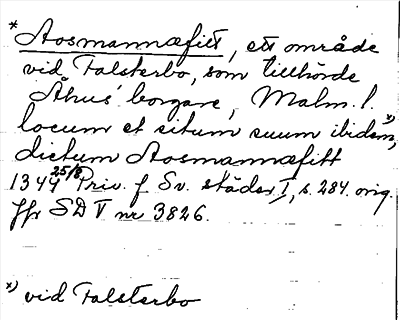 * Aosmannæfitt, ett område
vid Falsterbo, som tillhörde
Åhus' borgare, Malm. l.
locum et situm suum ibidem, x)
dictum Aosmannæfitt
1344 25/8 Priv. f. Sv. städer I, s. 284. orig.
Jfr SD V nr 3826.
x) vid Falsterbo